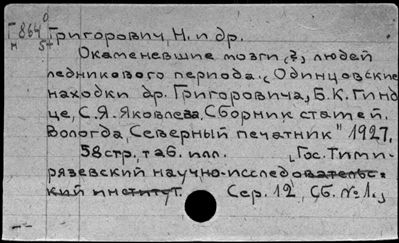 Г 864 Григорович, Н. и др.
н 5+
Окаменевшие мозги, &, людей
ледникового периода. „Одинцовские
находки др. Григоровича, Б. К. Гинд
це, С. Я. Яковлева. Сборник статей.
Вологда, „Северный печатник" 1927.
58 стр., таб. илл. „Гос. Тими-
рязевский научно-исследовательс-
кий институт. Сер. 12, Сб. № 1.„